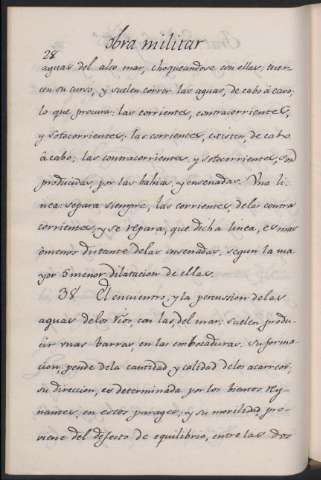 28
obra militar
aguas del alto mar, choqueandose con ellas, tuer-
cen su curso, y suelen correr las aguas, de cabo à cavo,
lo que procura las corrientes, contracorrientes,
y sotacorrientes; las corrientes, existen, de cabo
à cabo; las contracorrientes, y sotacorrientes, son
producidas, por las bahias, y ensenadas. Una li-
nea separa siempre, las corrientes, delas contra
corrientes y se repara, que dicha linea, es mas
òmenos distante delas ensenadas, segun la ma
yor ò menor dilatacion de ellas.
38 El encuentro, y la percusion delas
aguas delos rios, con las del mar; suelen produ-
cir unas barras, en las embocaduras. Su forma-
cion, pende dela cantidad y calidad delos acarreos,
su direccion, es determinada por los vientos Rey-
nantes, en estos parages, y su movilidad, pro-
viene del defecto de equilibrio, entre las dos